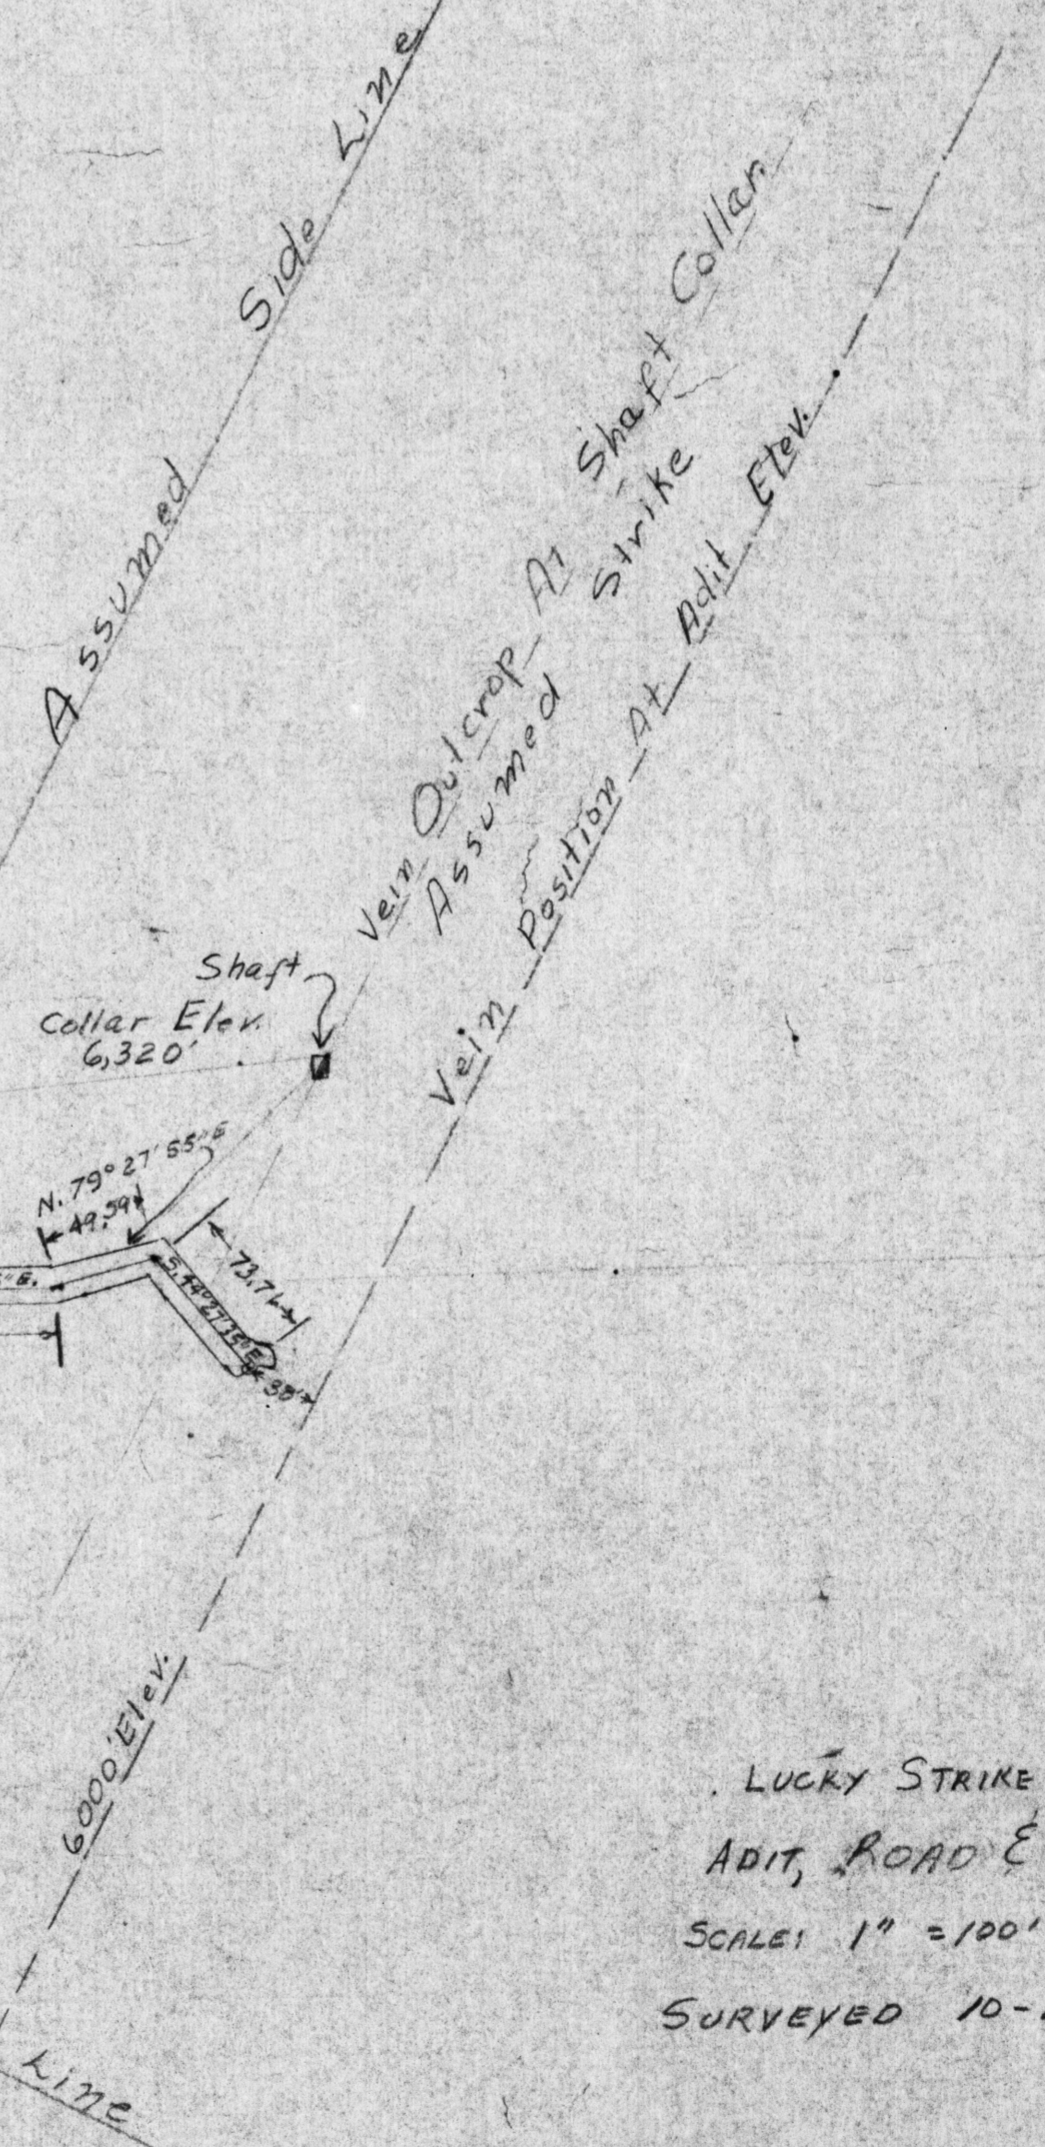 Assumed Side Line
Vein Outcrop At Shaft Collar
Assumed Strike
Vein Position At Adit Elev.
Shaft
Collar Elev.
6,320'
N. 79° 27' 55" E
49.59
73.71
S. 44° 27' 35" E
38'
6000' Elev.
Line
LUCKY STRIKE
ADIT, ROAD &
SCALE: 1" = 100'
SURVEYED 10-